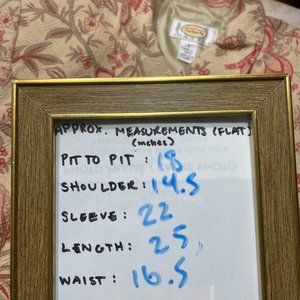 APPROX. MEASUREMENTS (FLAT)
(inches)
PIT TO PIT : 18
SHOULDER: 14.5
SLEEVE: 22
LENGTH: 25
WAIST: 16.5